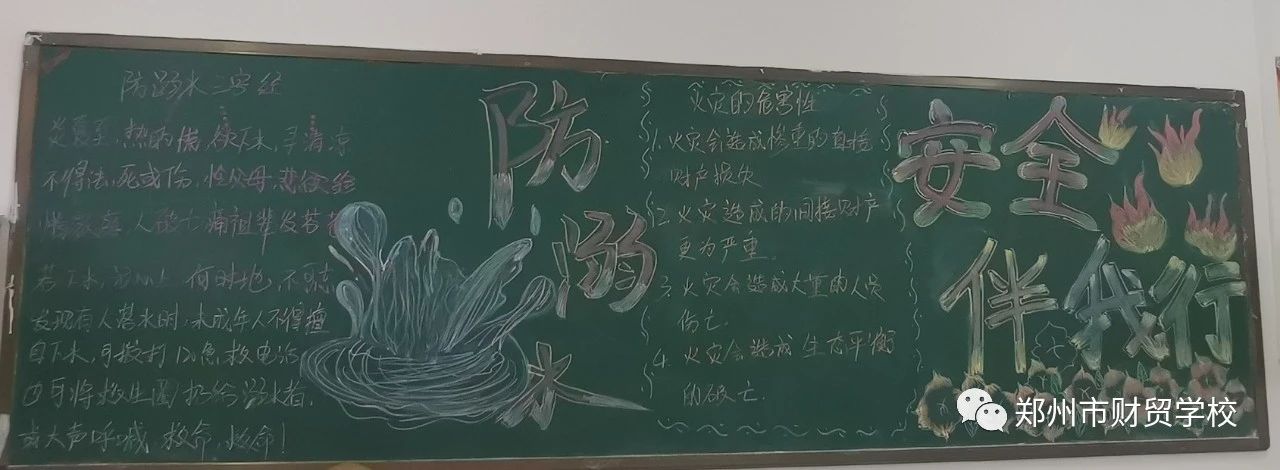 防溺水三字经
炎夏至,热的慌,欲下水,寻清凉
不得法,死或伤,
人 亡 痛祖辈 发苍苍
若下水, 何时地,不
发现有人落水时,未成年人不得擅
自下水,可拨打120急救电话
将救生圈扔给溺水者,
或大声呼喊,救命,救命!
防溺水
火灾的危害性
1. 火灾会造成惨重的直接
财产损失
2. 火灾造成的间接财产
更为严重.
3. 火灾会造成大量的人员
伤亡.
4. 火灾会造成生态平衡
的破亡.
安全
伴我行
郑州市财贸学校